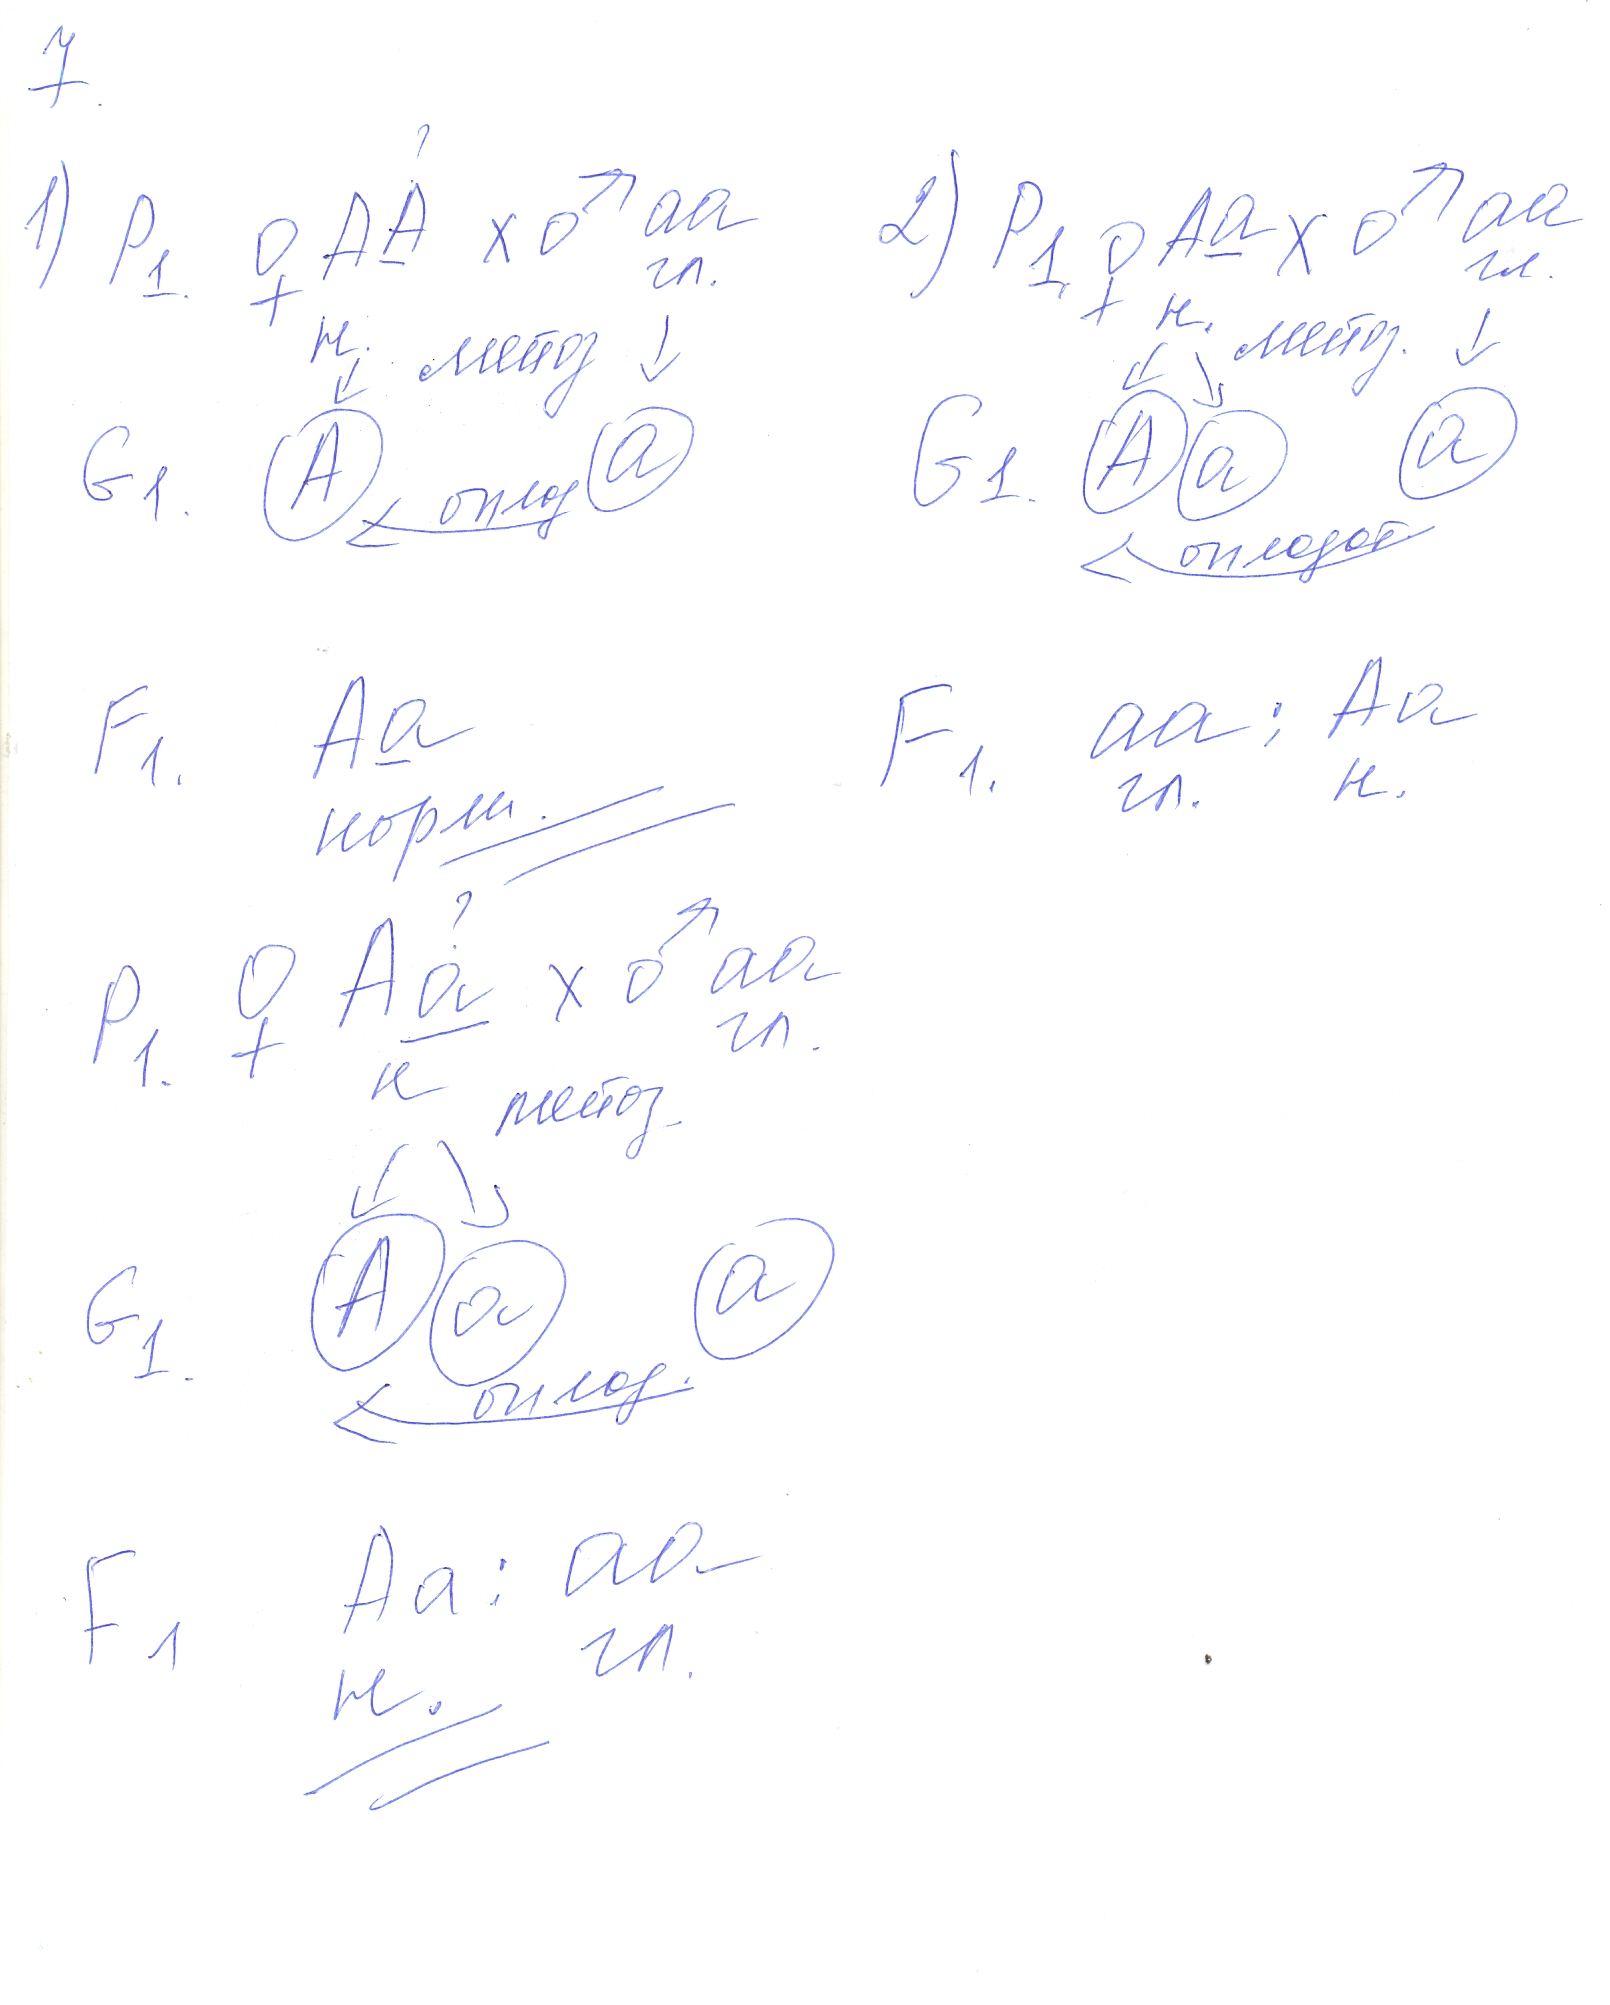 7.
?
1) P1. ♀ AA x ♂ aa
гл.
н. мейоз
G1. A a
оплод
F1. Aa
норм.
2) P1. ♀ Aa x ♂ aa
гл.
н. мейоз.
G1. A a a
оплодот.
F1. aa : Aa
гл. н.
?
P1. ♀ Aa x ♂ aa
гл.
н мейоз
G1. A a a
оплод.
F1 Aa : aa
н. гл.